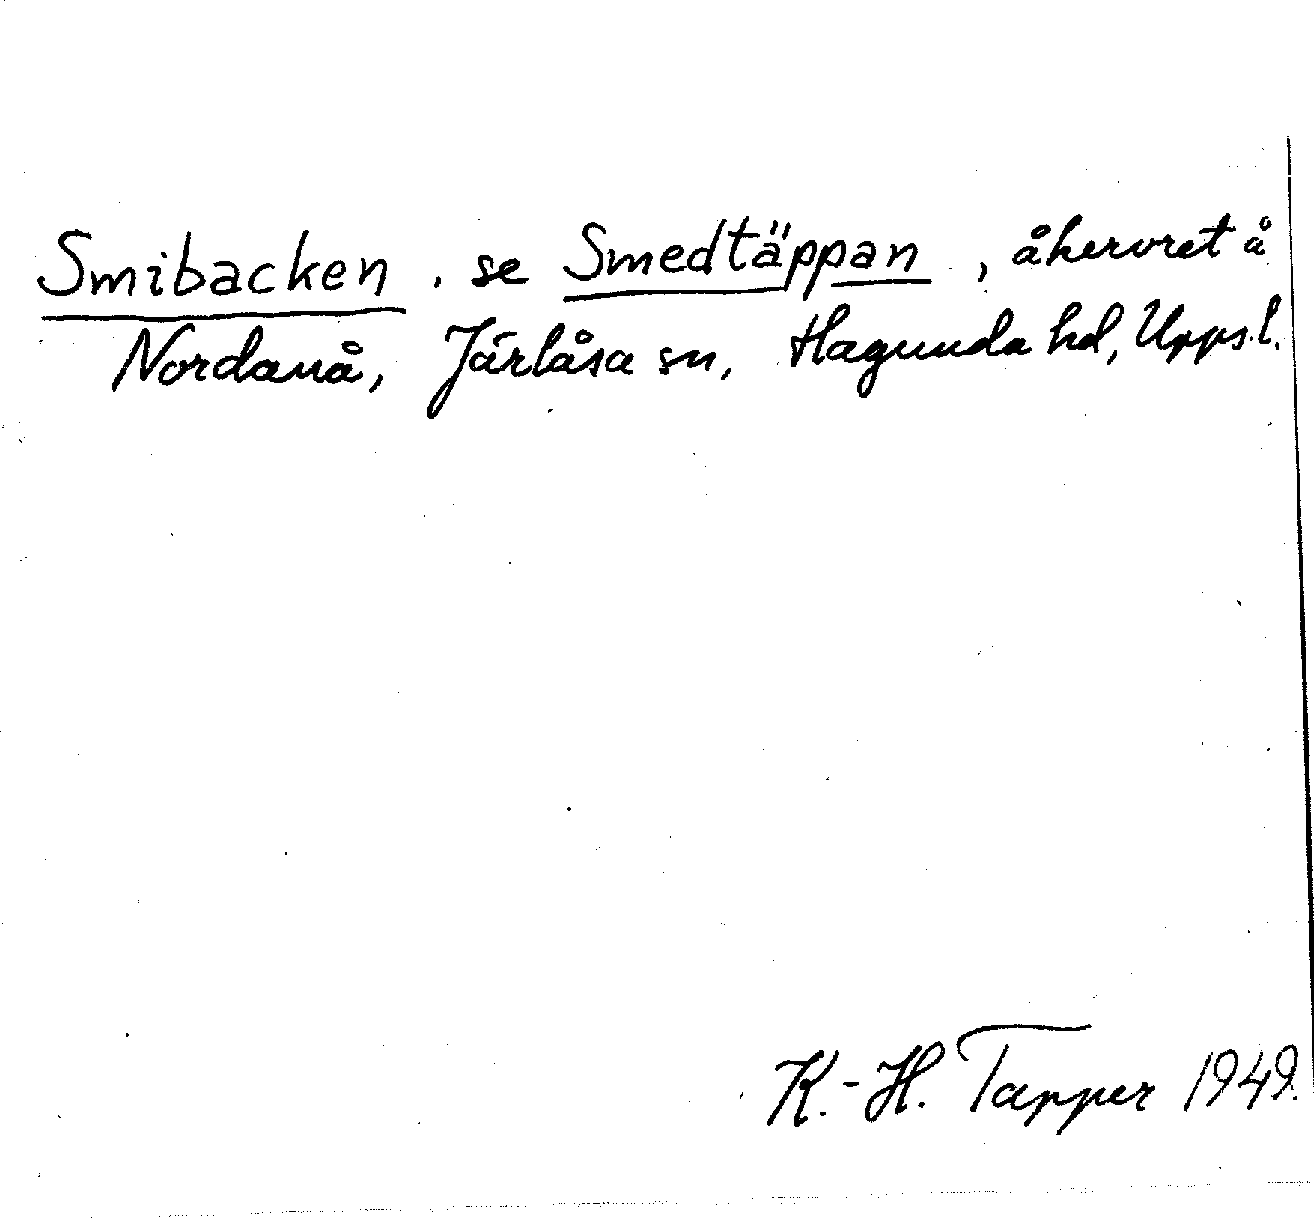 Smibacken, se Smedtäppan, åkervret å
Nordanå, Järlåsa sn, Hagunda hd, Upps.l.
K.-H. Tapper 1949.